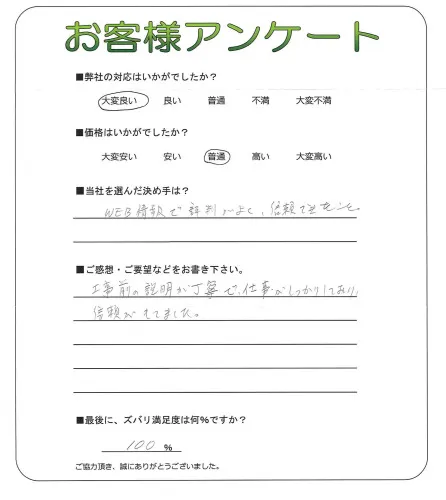 お客様アンケート
■弊社の対応はいかがでしたか?
大変良い 良い 普通 不満 大変不満
■価格はいかがでしたか?
大変安い 安い 普通 高い 大変高い
■当社を選んだ決め手は?
WEB情報で評判がよく、信頼できたこと。
■ご感想・ご要望などをお書き下さい。
工事前の説明が丁寧で、仕事がしっかりしており、
信頼がもてました。
■最後に、ズバリ満足度は何%ですか?
100 %
ご協力頂き、誠にありがとうございました。